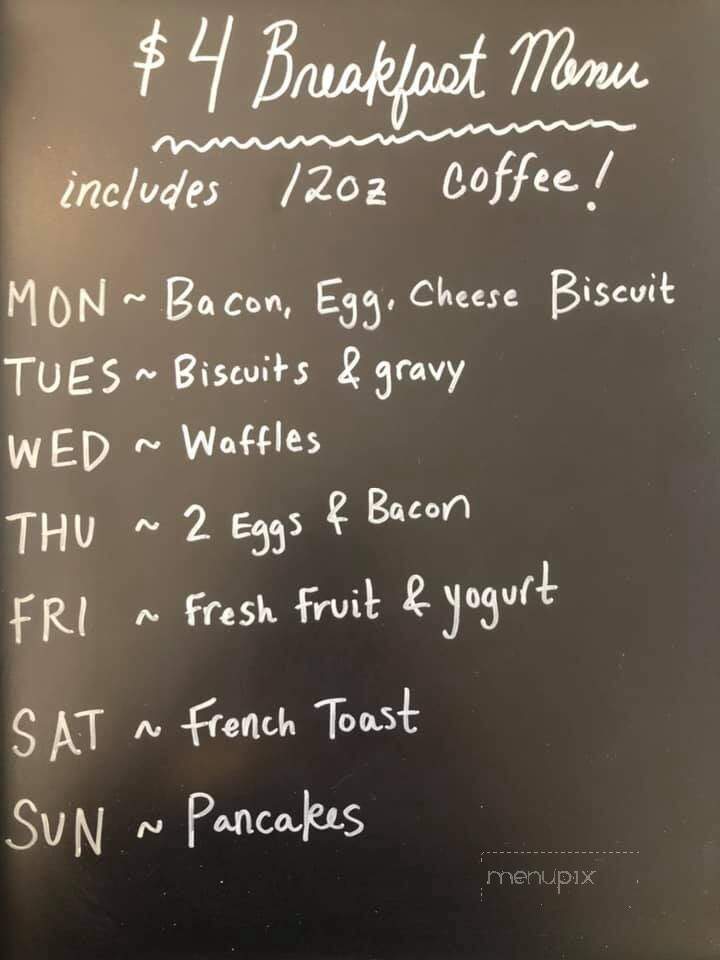 $4 Breakfast Menu
includes 12oz Coffee!
MON ~ Bacon, Egg, Cheese Biscuit
TUES ~ Biscuits & gravy
WED ~ Waffles
THU ~ 2 Eggs & Bacon
FRI ~ Fresh Fruit & yogurt
SAT ~ French Toast
SUN ~ Pancakes
menupix